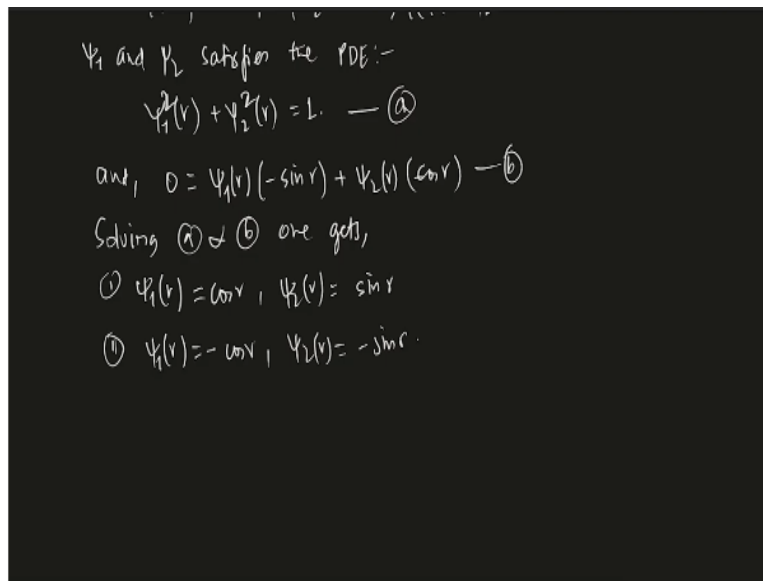 Ψ₁ and Ψ₂ satisfies the PDE:-
Ψ₁²(r) + Ψ₂²(r) = 1. — ⓐ
and, 0 = Ψ₁(r)(-sin r) + Ψ₂(r)(cos r) — ⓑ
Solving ⓐ & ⓑ one gets,
Ⓘ Ψ₁(r) = cos r, Ψ₂(r) = sin r
Ⓘ Ψ₁(r) = - cos r, Ψ₂(r) = - sin r.